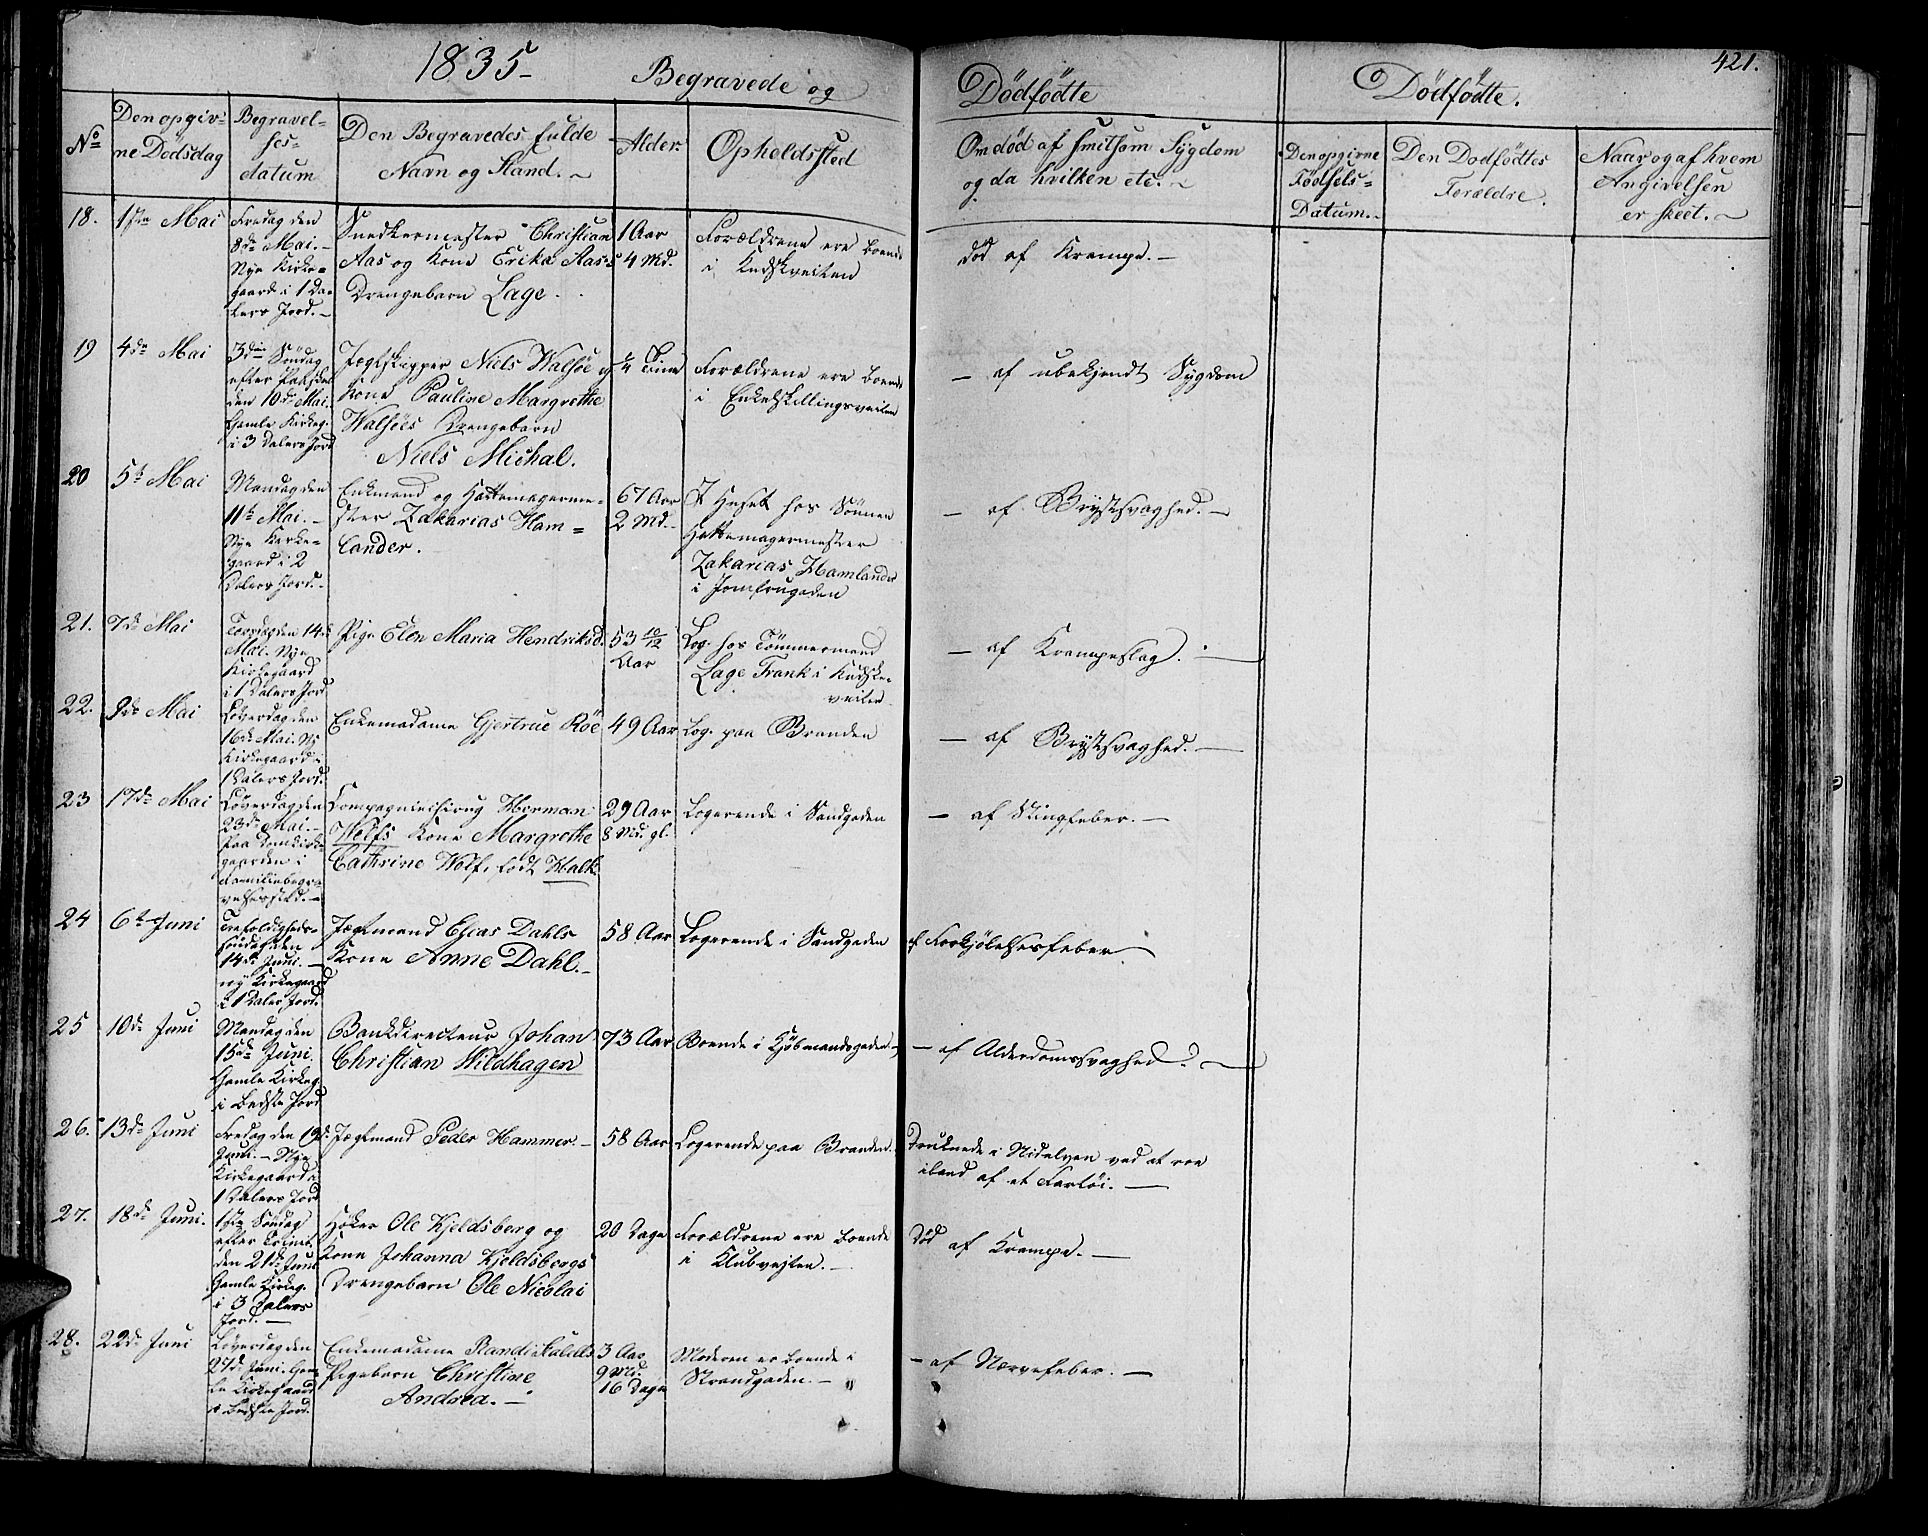 1835-
Begravede og
Dödfödte
Dödfödte.
421.
No
Den opgiv-
ne Dödsdag
Begravel-
ses-
datum
Den Begravedes fulde
Navn og Stand.
Alder.
Opholdssted
Om død af smitsom Sygdom
og da hvilken etc.
Den opgivne
Födsels-
Datum.
Den Dodfödtes
Forældre.
Naar og af hvem
Angivelsen
er skeet.
18.
1ste Mai
Fredag den
8de Mai.
Nye Kirke-
gaard i 1 Da-
lers Jord.
Snedkermester Christian
Aas og Kone Erika Aas's
Drengebarn Lage.
1 Aar
4 Md.
Forældrene ere boende
i
död af Krampe.
19
4de Mai
3die Söndag
efter Paaske
den 10de Mai.
Gamle Kirkeg.
i 3 Dalers Jord
Jægtskipper Niels Walsöe og
Kone Pauline Margrethe
Walsöes Drengebarn
Niels Michal.
Forældrene ere boende
i Enkeltskillingsveiten
- af ubekjendt Sygdom
20
5te Mai
Mandag den
11te Mai.
Nye Kirke-
gaard i 2
Dalers Jord.
Enkmand og Hattemagerme-
ster Zakarias Ham=
lander.
67 Aar
2 Md.
I Huset hos Sönnen
Hattemagermester
Zakarias Hamlander
i Jomfrugaden
- af Brystsvaghed.
21.
7de Mai
Torsdag den 14de
Mai. Nye
Kirkegaard
i 1 Dalers Jord
Pige Elen Maria Hendriksd.
53 10/12
Aar
Log. hos Tömmermand
Lage Frank i Kudske-
veiten
- af Krampeslag.
22.
9de Mai
Löverdag den
16de Mai. Ny
Kirkegaard i
1 Dalers Jord.
Enkemadame Gjertrue Röe
49 Aar
Log. paa Branden
- af Brystsvaghed.
23
17de Mai
Löverdag den
23de Mai.
paa Domkirke-
gaarden i
Familiebegra-
velsessted.
Compagniechirurg Herman
Wolfs Kone Margrethe
Cathrine Wolf, födt Halk.
29 Aar
8 Md. gl.
Logerende i Sandgaden
- af Stingfeber.
24
6te Juni
Trefoldigheds-
söndag den
14de Juni.
ny Kirkegaard
i 1 Dalers Jord.
Jægtmand Elias Dahls
Kone Anne Dahl.
58 Aar
Logerende i Sandgaden
af Forkjölelsesfeber.
25
10de Juni
Mandag den
15de Juni.
Gamle Kirkeg.
i bedste Jord
Bankdirecteur Johan
Christian Wildhagen
73 Aar
Boende i Kjöbmandsgaden
- af Alderdomssvaghed.
26.
13de Juni
Fredag den 19de
Juni. - Nye
Kirkegaard i
1 Dalers Jord
Jægtmand Peder Hammer.
58 Aar
Logerende paa Branden.
Druknede i Nidelven ved at roe
iland af et Fartöi.
27.
18de Juni.
1ste Söndag
efter Trinit.
den 21de Juni
Gamle Kirkeg.
i 3 Dalers
Jord.
Höker Ole Kjeldsberg og
Kone Johanna Kjeldsbergs
Drengebarn Ole Nicolai
20 Dage
Forældrene ere boende
i Klubveiten.
Död af Krampe.
28.
22de Juni
Löverdag den
27de Juni. Gam-
le Kirkegaard
i bedste Jord.
Enkemadame Randi
Pigebarn Christine
Andrea.
3 Aar
9 Md.
16 Dage
Moderen er boende i
Strandgaden.
- af Nervefeber.